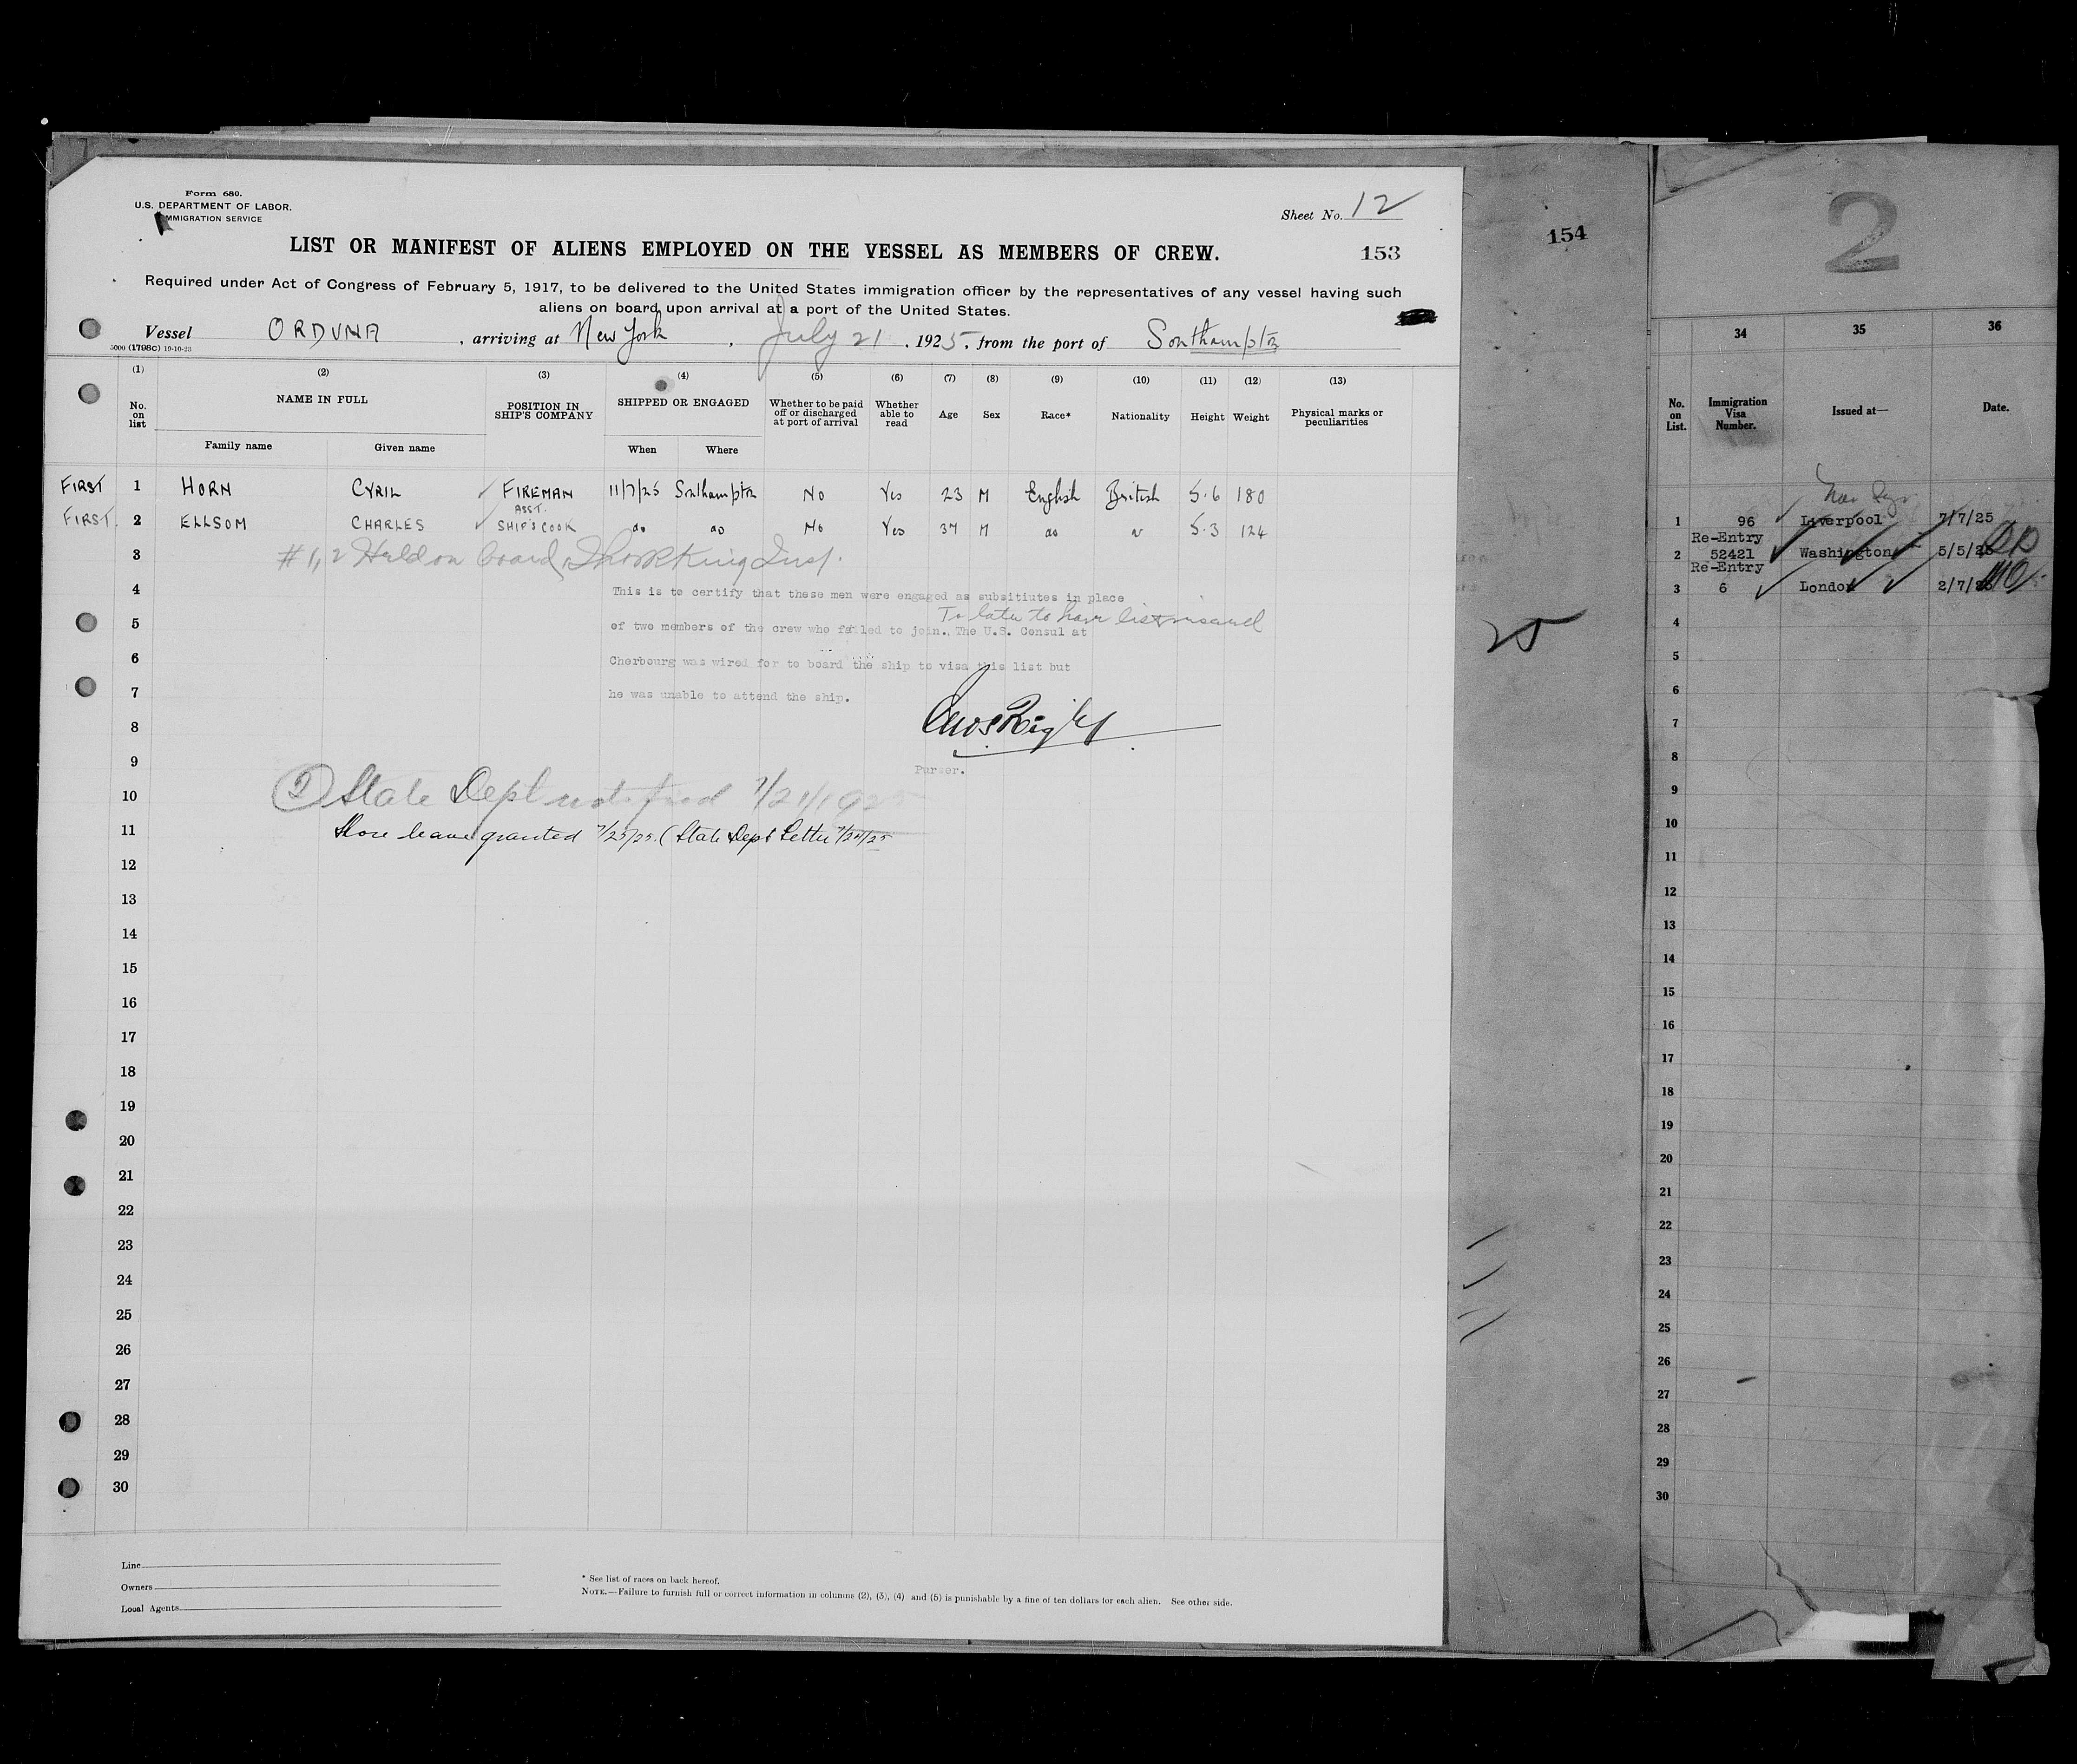 Form 680.
U.S. DEPARTMENT OF LABOR.
IMMIGRATION SERVICE
Sheet No. 12
LIST OR MANIFEST OF ALIENS EMPLOYED ON THE VESSEL AS MEMBERS OF CREW.
153
Required under Act of Congress of February 5, 1917, to be delivered to the United States immigration officer by the representatives of any vessel having such
aliens on board upon arrival at a port of the United States.
Vessel ORDUNA, arriving at New York, July 21, 1925, from the port of Southampton
5000 (1798C) 19-10-23
(1) (2) (3) (4) (5) (6) (7) (8) (9) (10) (11) (12) (13)
No. on list NAME IN FULL POSITION IN SHIP'S COMPANY SHIPPED OR ENGAGED Whether to be paid off or discharged at port of arrival Whether able to read Age Sex Race* Nationality Height Weight Physical marks or peculiarities
Family name Given name When Where
FIRST 1 HORN CYRIL FIREMAN 11/7/25 Southampton No Yes 23 M English British 5.6 180
FIRST. 2 ELLSOM CHARLES ASST. SHIP'S COOK do do No Yes 37 M do 5.3 124
3 #1, 2 Held on board, King Insp.
4 This is to certify that these men were engaged as subsitiutes in place
To late to have list visaed
5 of two members of the crew who failed to join. The U.S. Consul at
6 Cherbourg was wired for to board the ship to visa this list but
7 he was unable to attend the ship.
8
9 Purser.
10 (2) State Dept notified 7/21/1925
11 Shore leave granted 7/25/25. (State Dept Letter 7/24/25
12
13
14
15
16
17
18
19
20
21
22
23
24
25
26
27
28
29
30
Line
Owners
Local Agents
* See list of races on back hereof.
NOTE.—Failure to furnish full or correct information in columns (2), (3), (4) and (5) is punishable by a fine of ten dollars for each alien. See other side.
154
25
2
34 35 36
No. on List. Immigration Visa Number. Issued at— Date.
1 96 Liverpool 7/7/25
Re-Entry
2 52421 Washington 5/5/25
Re-Entry
3 6 London 2/7/25
4
5
6
7
8
9
10
11
12
13
14
15
16
17
18
19
20
21
22
23
24
25
26
27
28
29
30